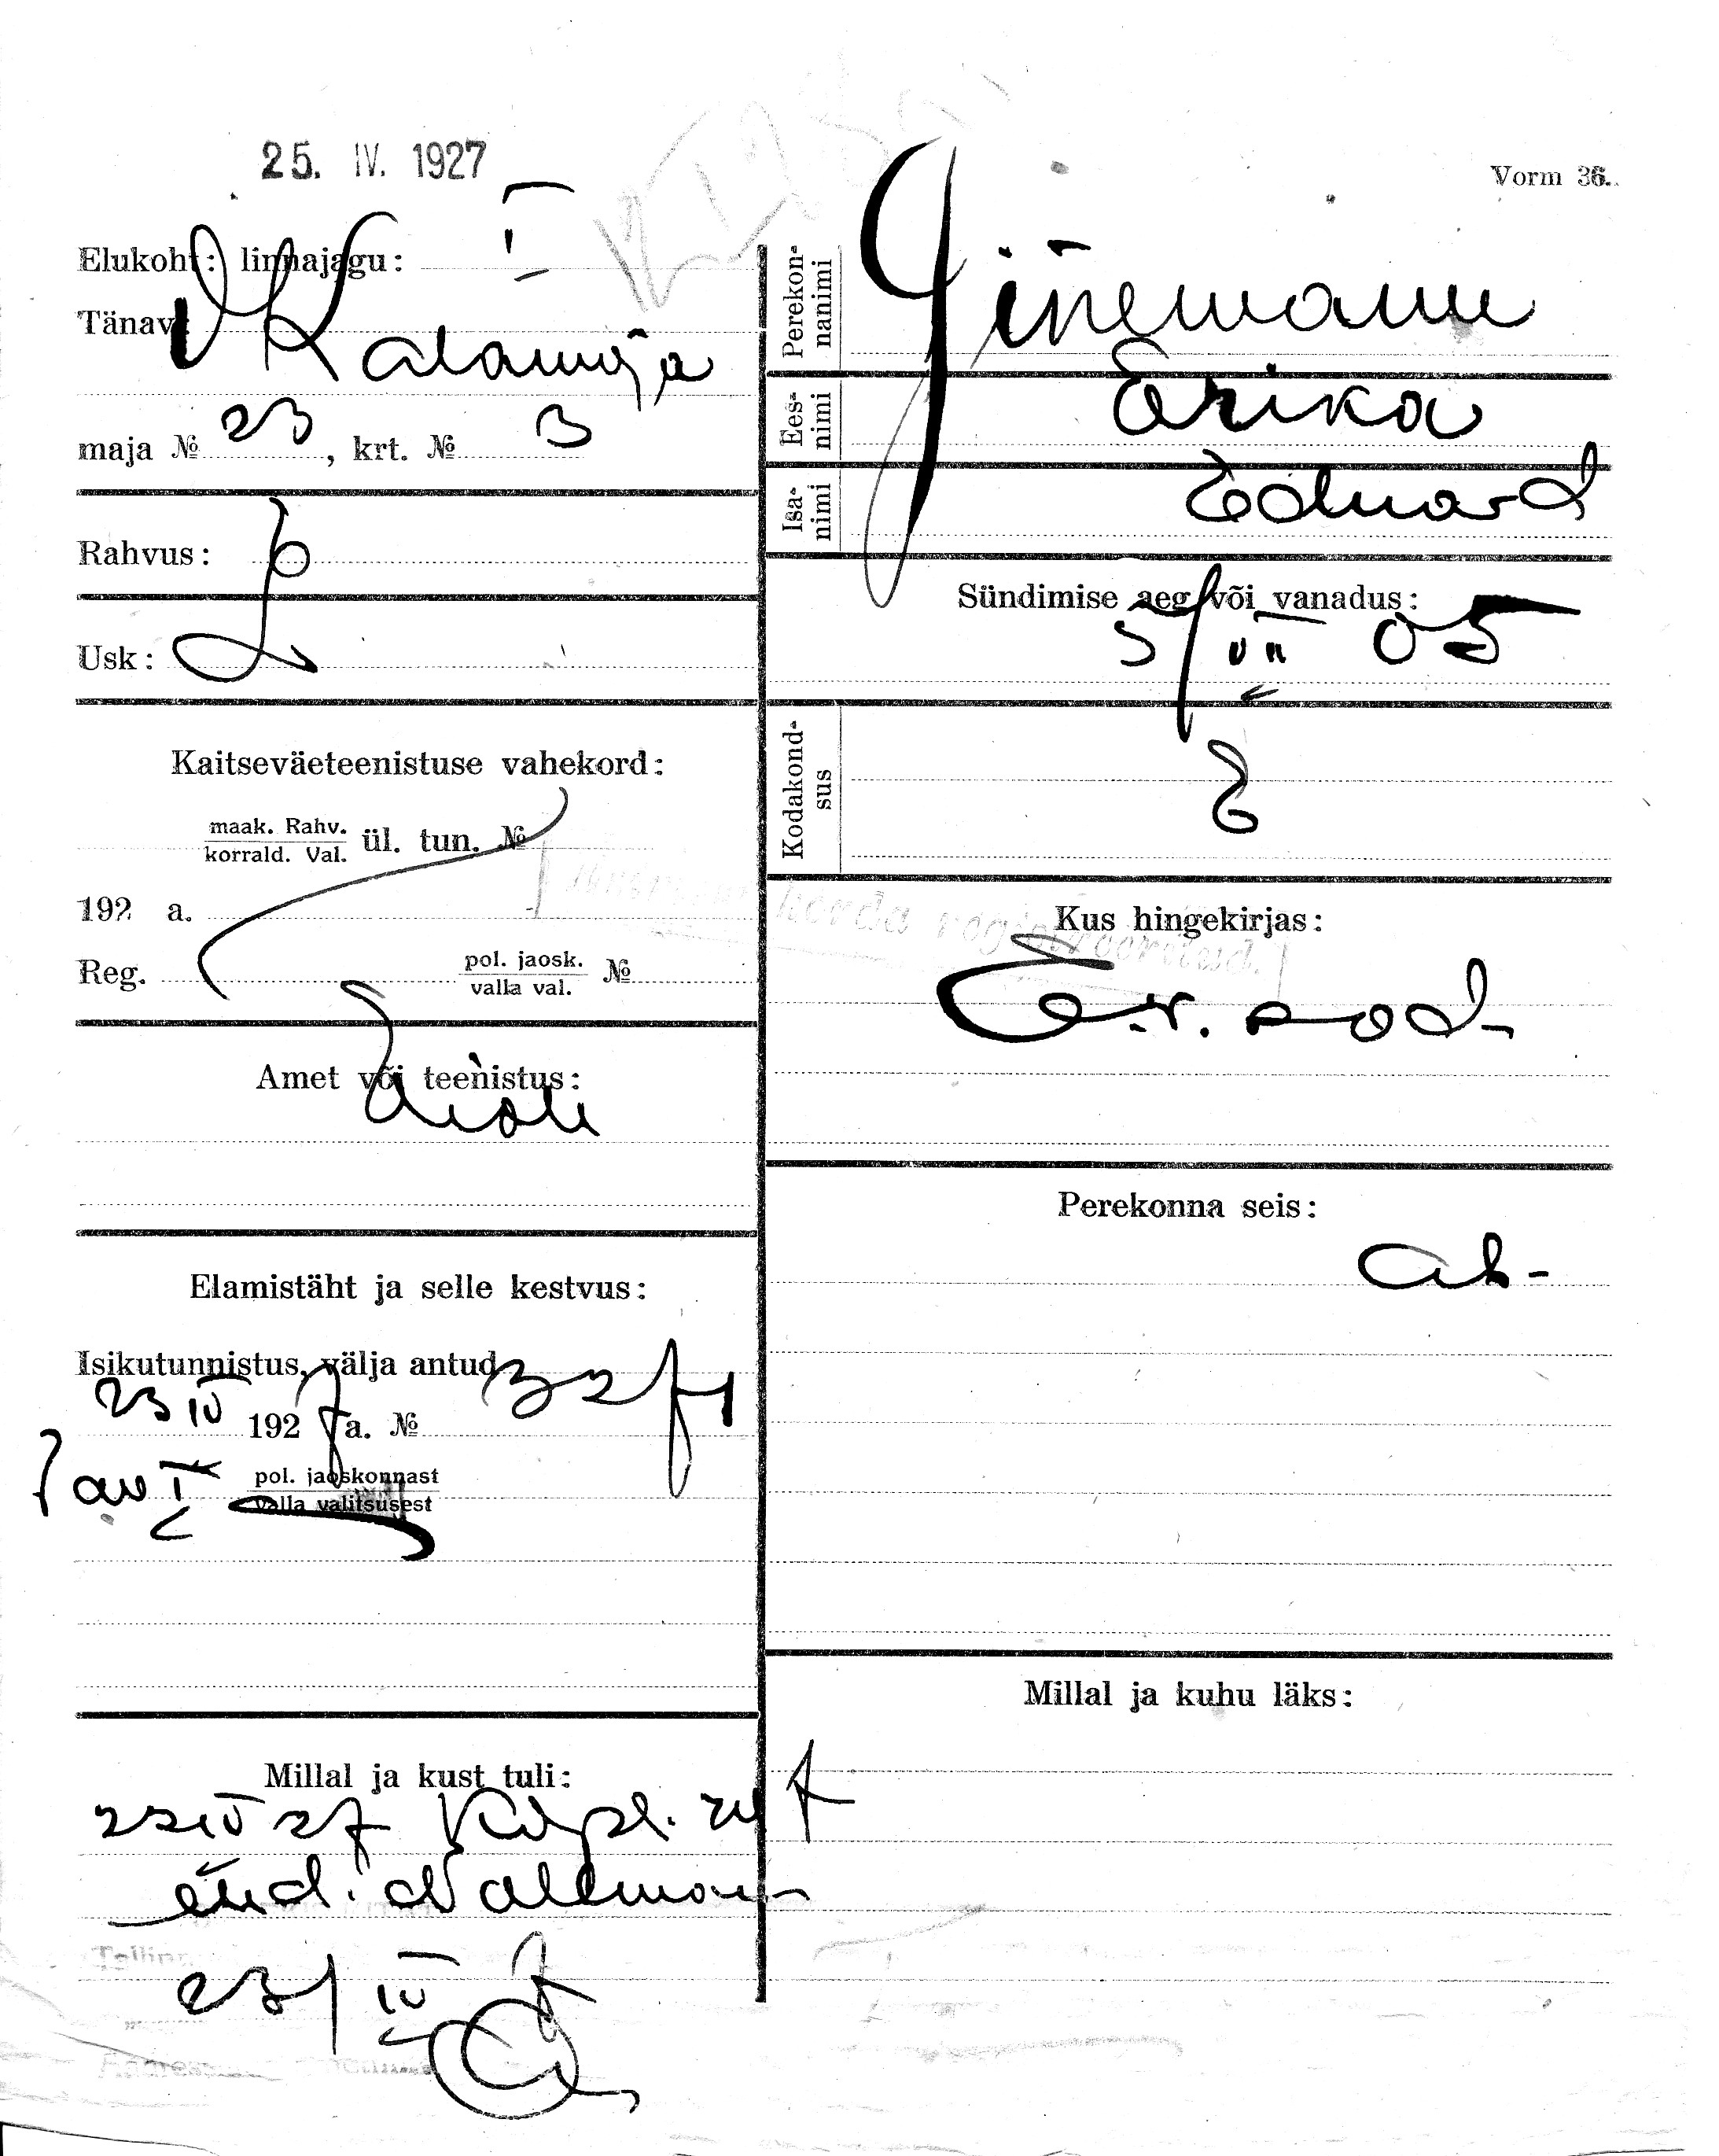 25. IV. 1927
Vorm 36.
Elukoht: linnajagu: I
Tänav: V Kalamaja
maja № 23, krt. № 3
Rahvus:
Usk: L
Kaitseväeteenistuse vahekord:
maak. Rahv.
korrald. Val. ül. tun. №
192 a.
Reg. pol. jaosk.
valla val. №
Amet või teenistus:
Elamistäht ja selle kestvus:
Isikutunnistus, välja antud
23 IV 1927 a. № 3271
pol. jaoskonnast
valla valitsusest
Millal ja kust tuli:
22 IV 27
end.
23/IV 7
Perekonnanimi
Jünemann
Eesnimi Erika
Isanimi Eduard
Sündimise aeg või vanadus:
5/VII 05
Kodakondsus
E
korda registreeritud.
Kus hingekirjas:
Perekonna seis:
ab-
Millal ja kuhu läks: